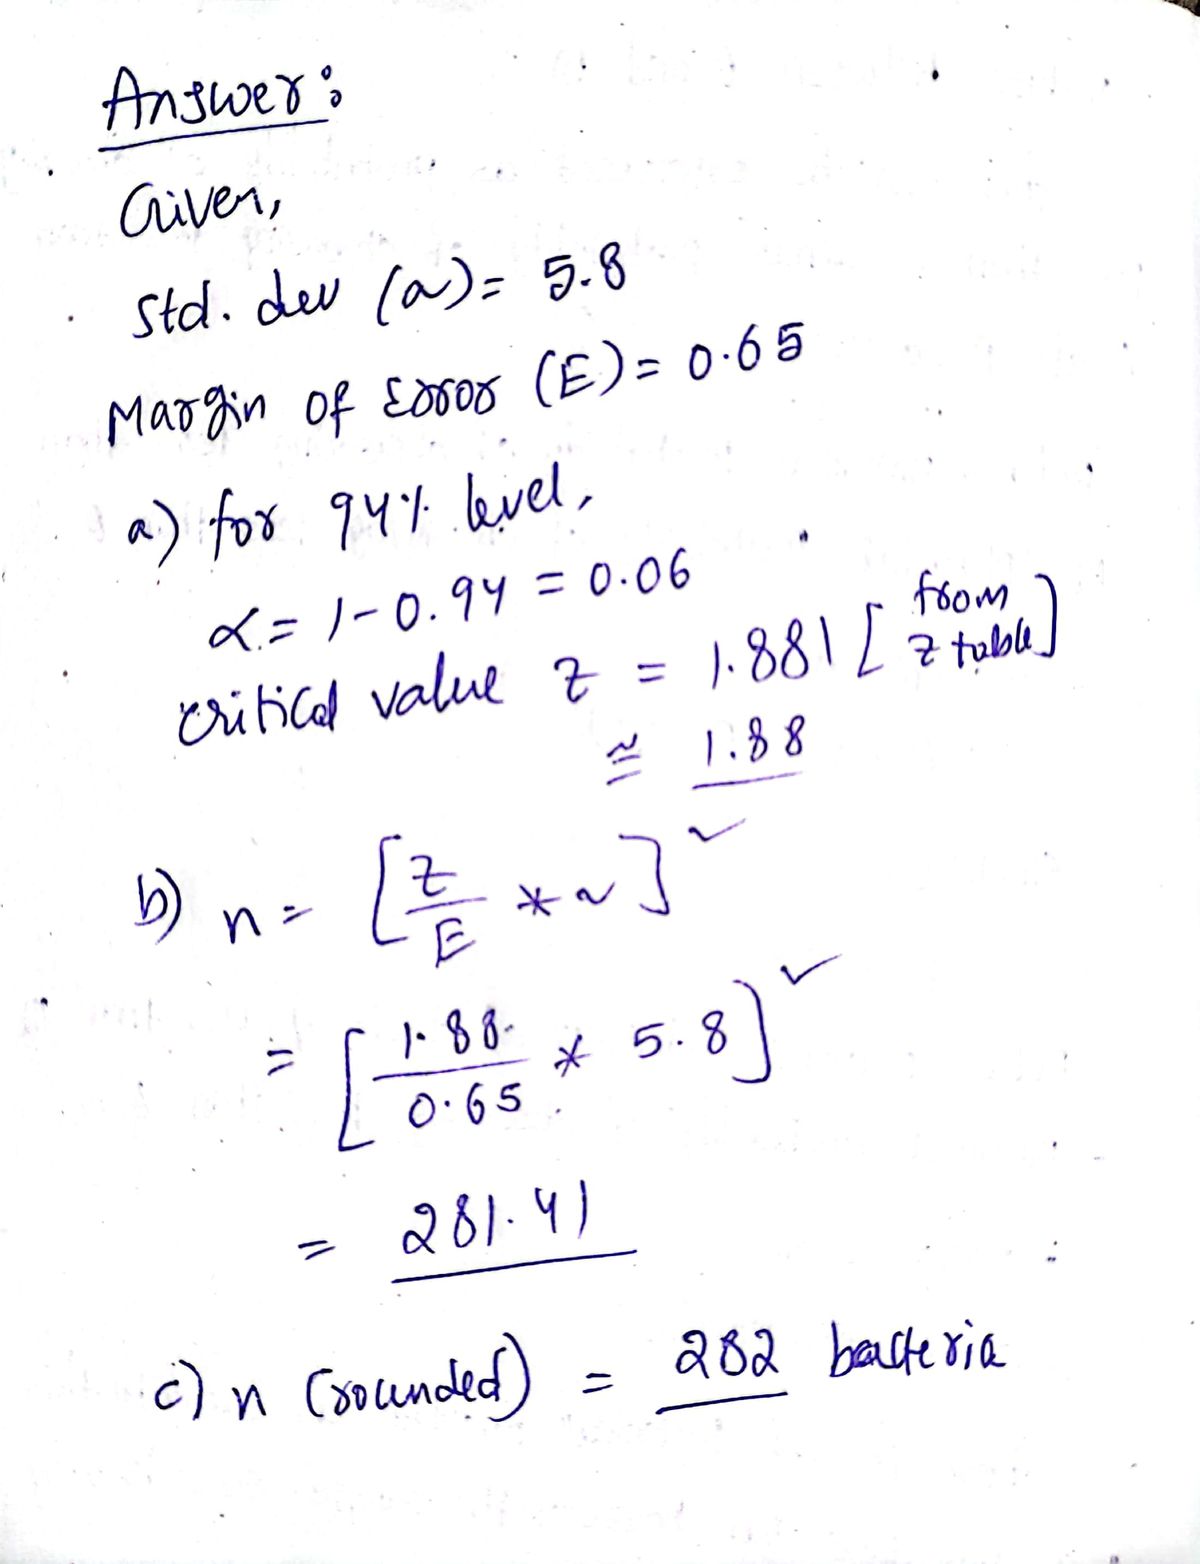 Answer:
Given,
Std. dev (a) = 5.8
Margin of Error (E) = 0.65
a) for 94% level,
α = 1-0.94 = 0.06
critical value z = 1.881 [from z table]
≅ 1.88
b) n = [z/E * ~]²
= [1.88/0.65 * 5.8]²
= 281.41
c) n (rounded) = 282 bacteria